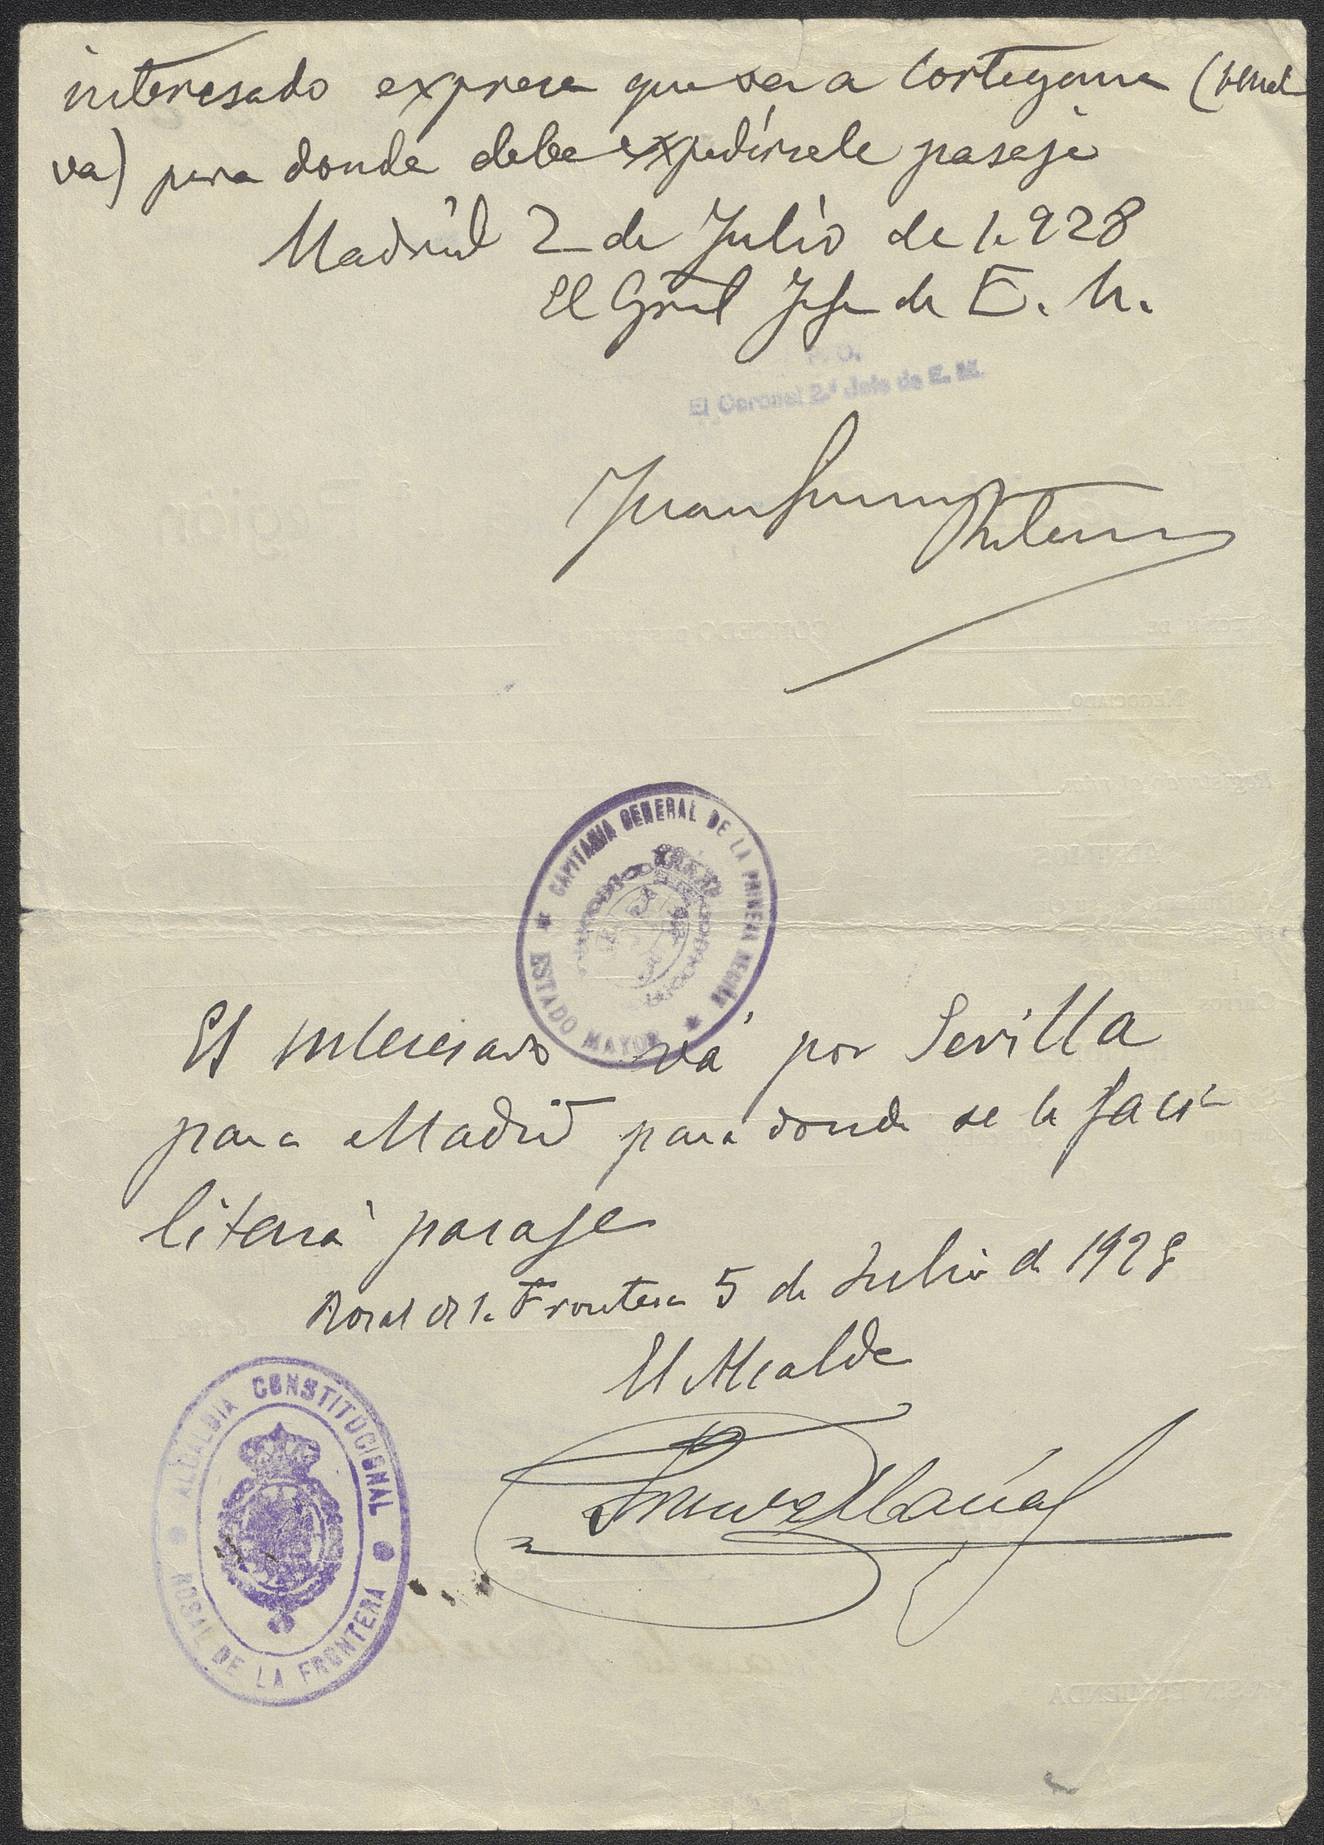 interesado expresa que sea a Cortegana (Huel
va) para donde debe expedírsele pasaje
Madrid 2 de Julio de 1.928
El Gral Jefe de E. M.
P. O.
El Coronel 2.º Jefe de E. M.
Juan
CAPITANIA GENERAL DE LA PRIMERA REGIÓN
ESTADO MAYOR
El interesado vá por Sevilla
para Madrid para donde se le faci
litará pasaje
Rosal de la Frontera 5 de Julio de 1928
El Alcalde
ALCALDIA CONSTITUCIONAL
ROSAL DE LA FRONTERA